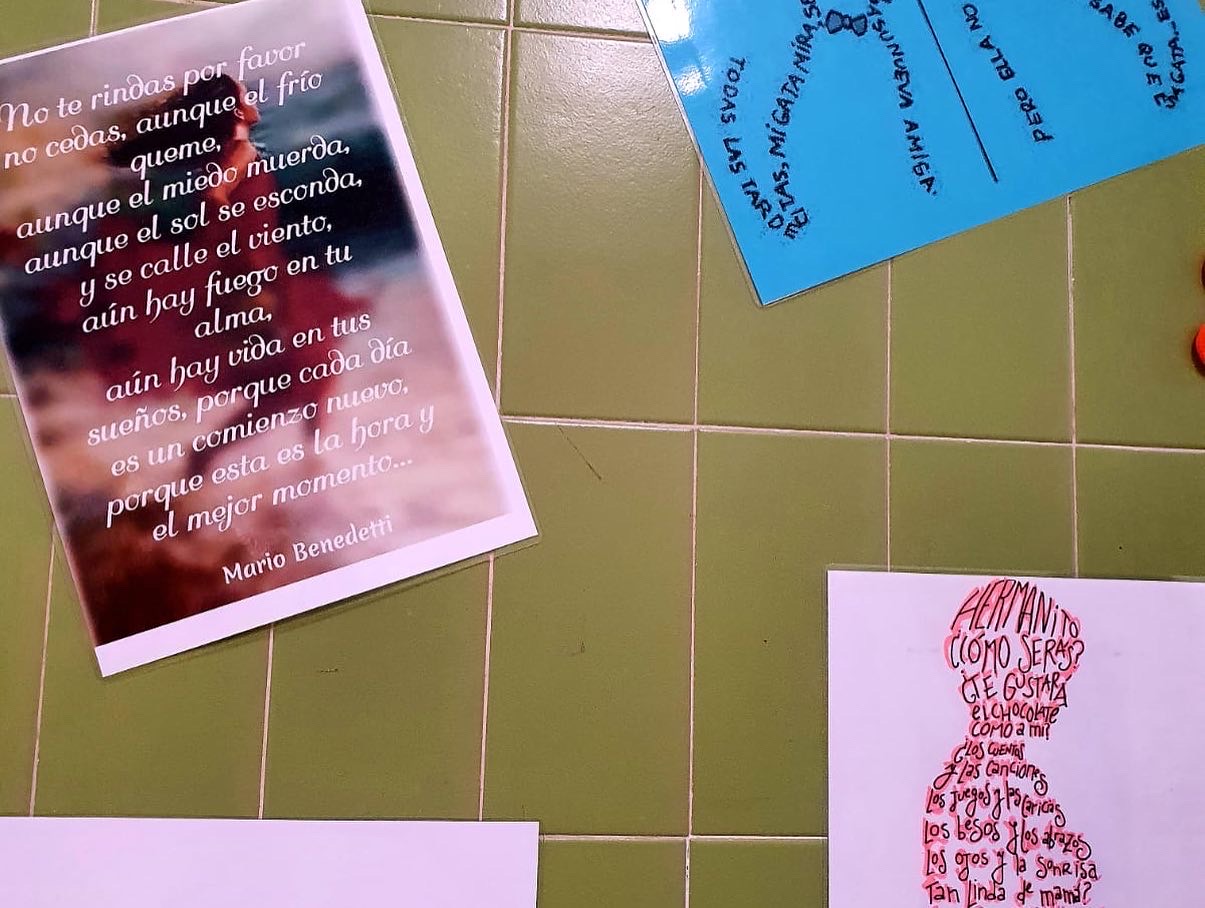 No te rindas por favor
no cedas, aunque el frío
queme,
aunque el miedo muerda,
aunque el sol se esconda,
y se calle el viento,
aún hay fuego en tu
alma,
aún hay vida en tus
sueños, porque cada día
es un comienzo nuevo,
porque esta es la hora y
el mejor momento...
Mario Benedetti
TODAS LAS TARD
MI GATA MIRA SE
SU NUEVA AMIGA.
PERO ELLA NO
SABE QUE E
HERMANITO
¿CÓMO SERÁS?
¿TE GUSTARÁ
EL CHOCOLATE
COMO A MÍ?
¿LOS CUENTOS
Y LAS CANCIONES
LOS JUEGOS Y LAS CARICIAS
LOS BESOS Y LOS ABRAZOS
LOS OJOS Y LA SONRISA
TAN LINDA DE MAMÁ?